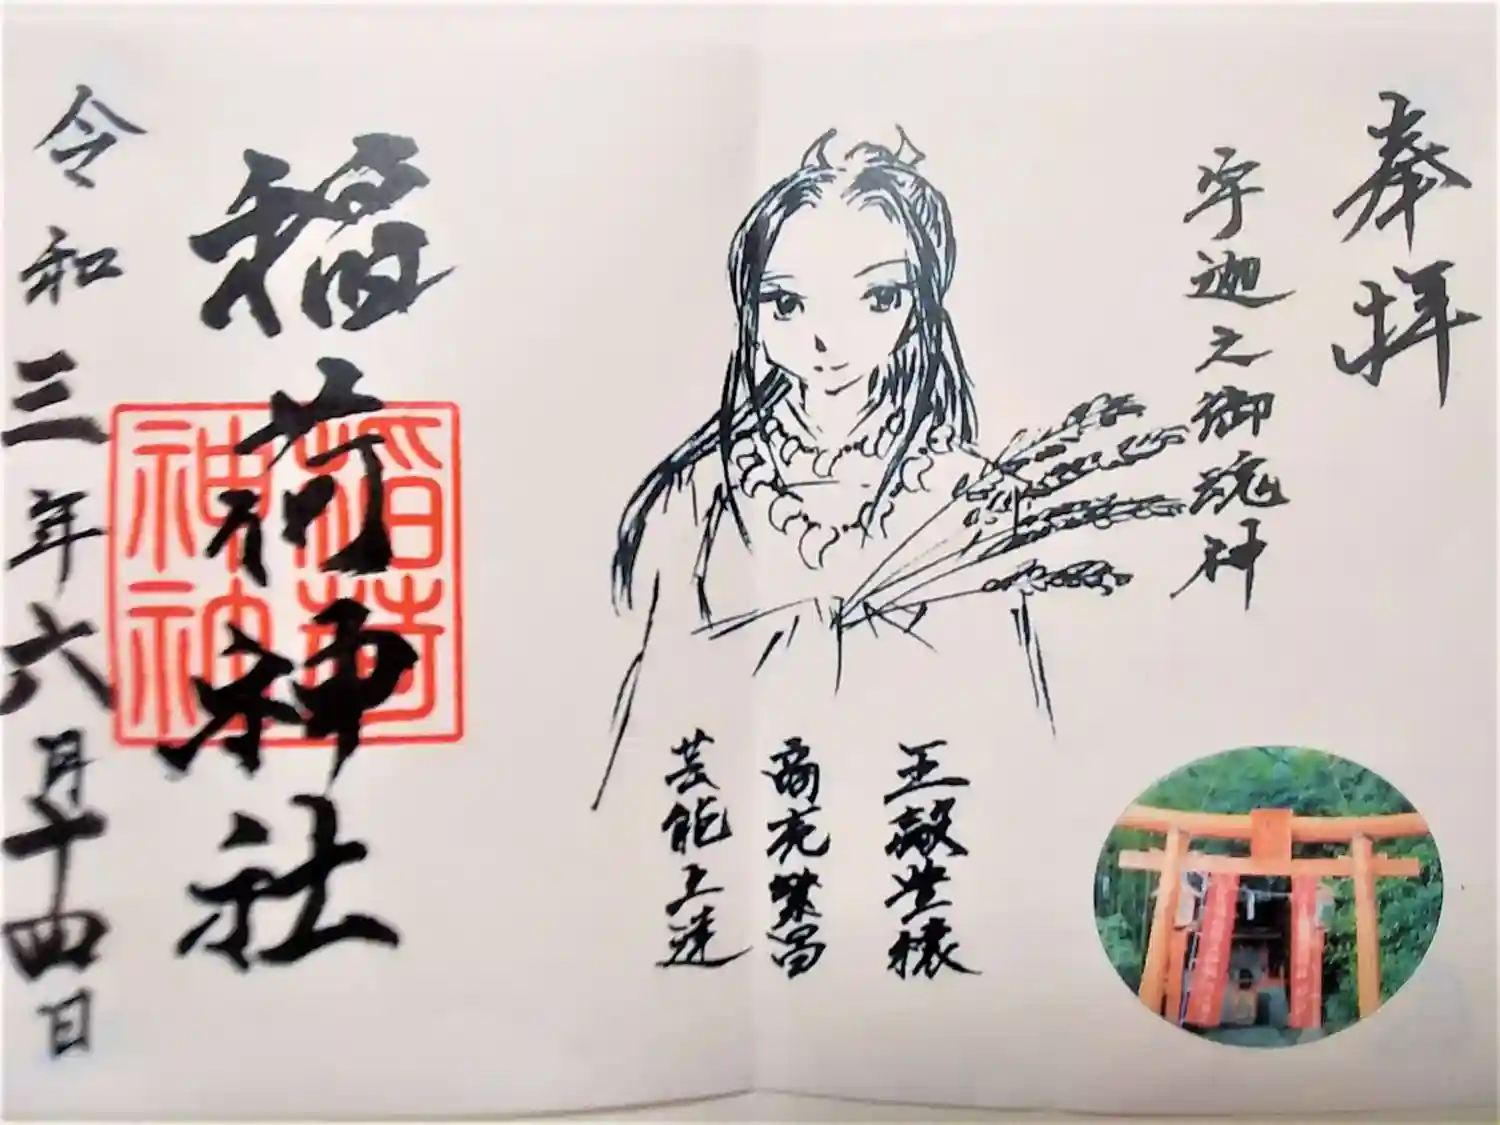 奉拝
宇迦之御魂神
五穀豊穣
商売繁昌
芸能上達
稲荷神社
稲荷
神社
令和三年六月十四日